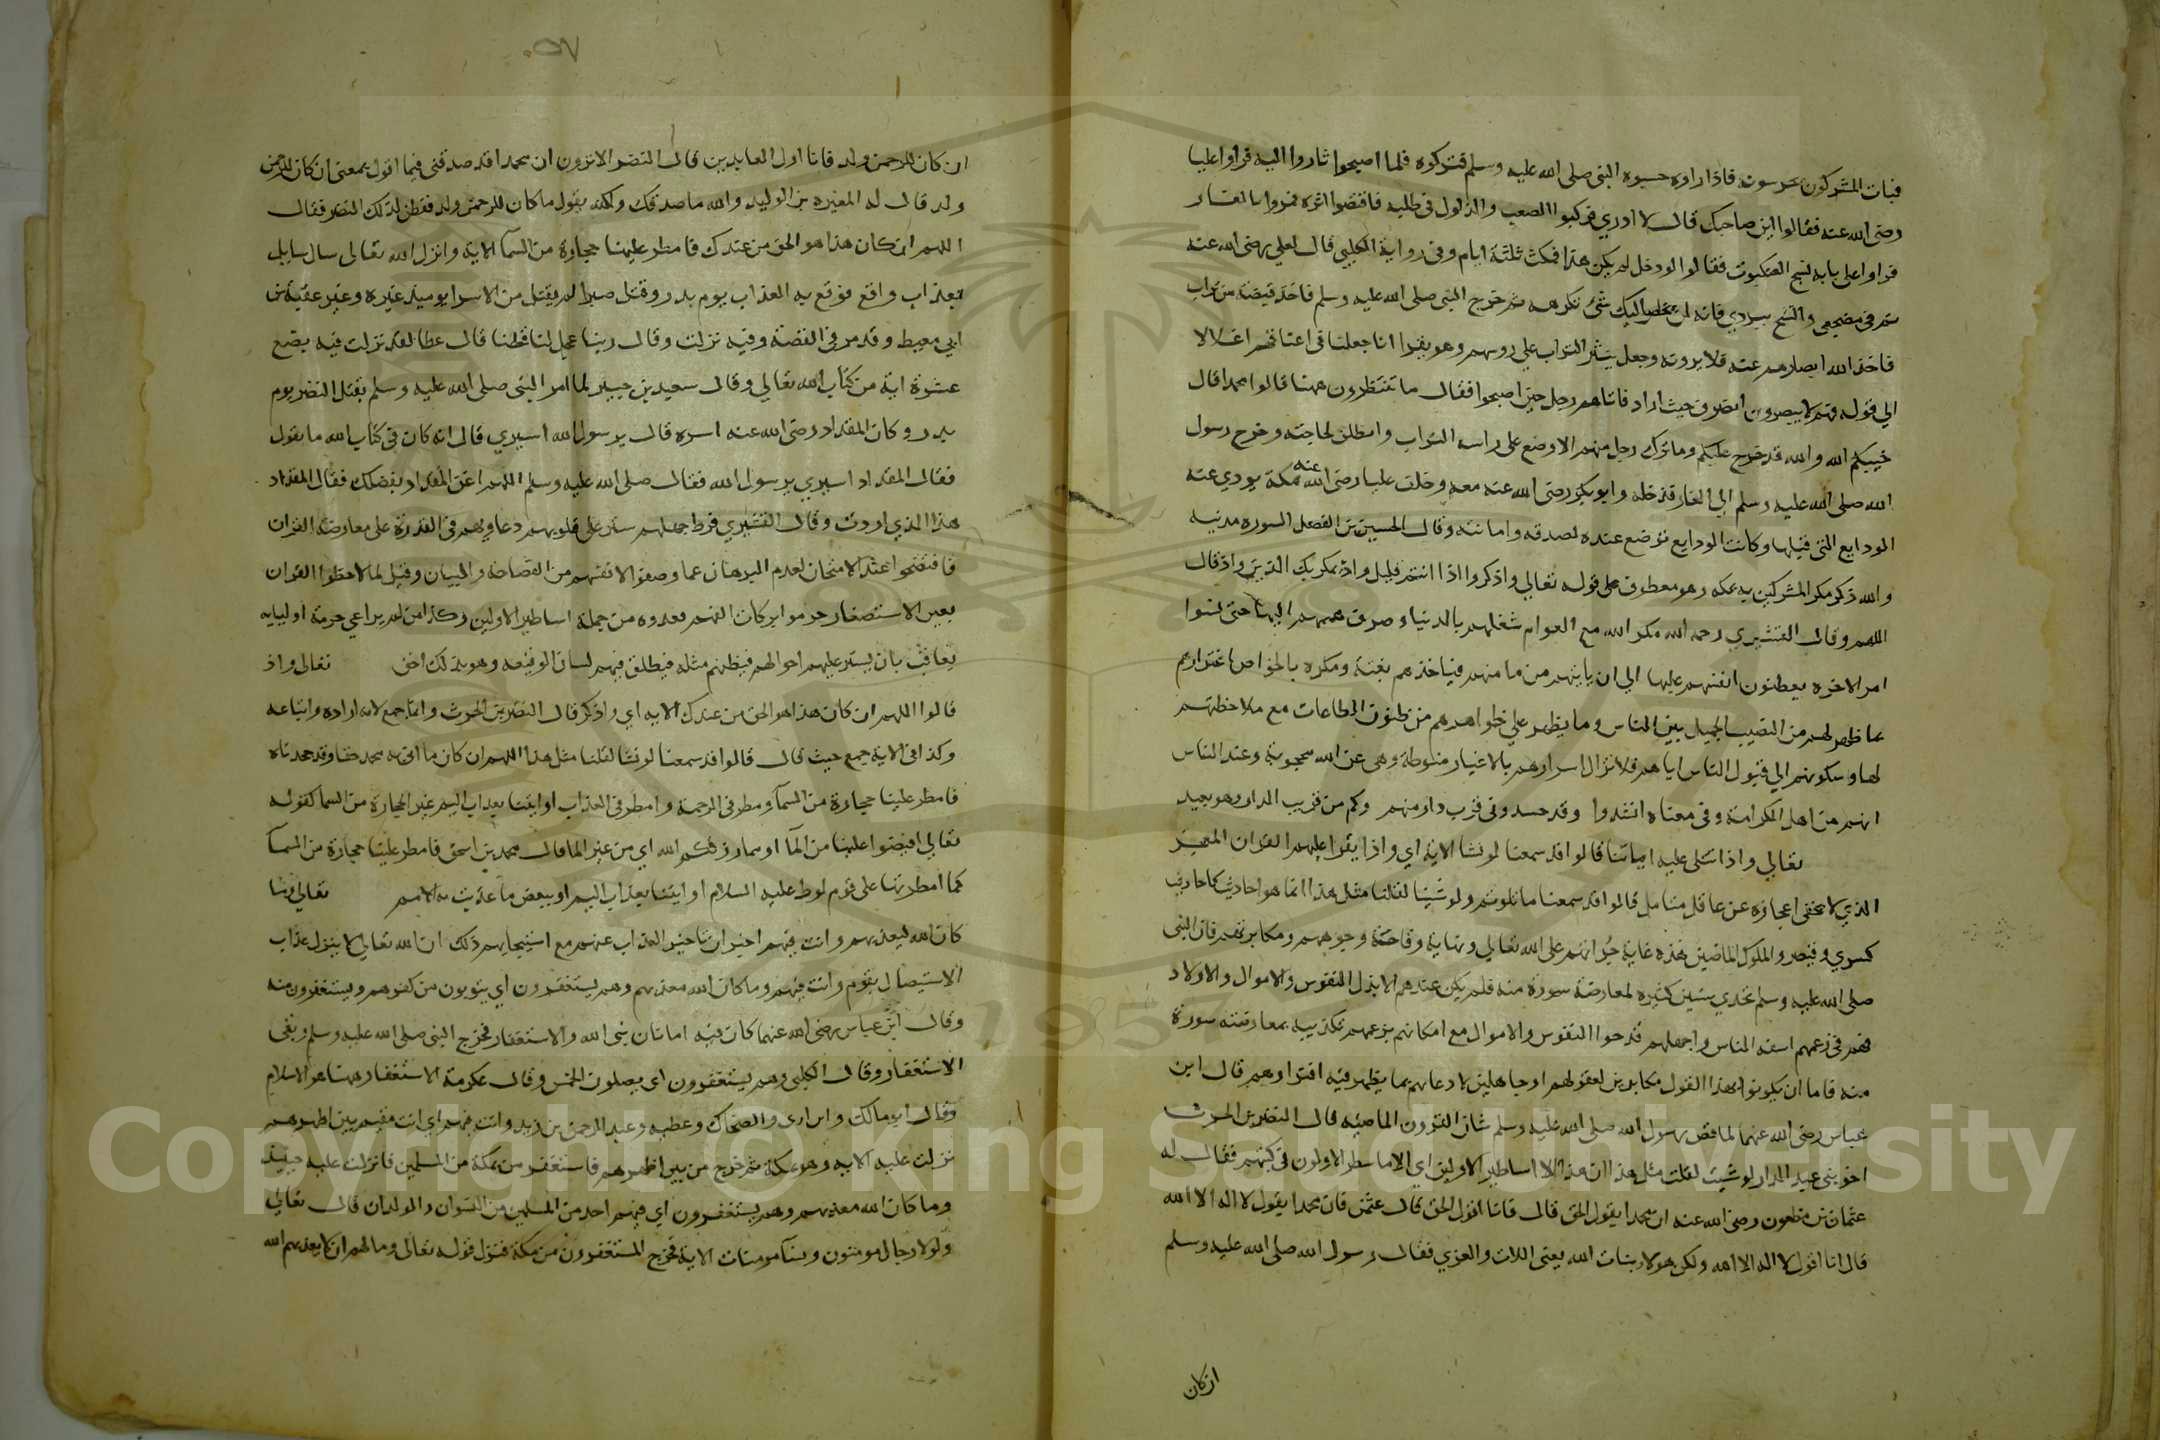 فبات المشركون يحرسونه فاذا راوه حسبوه النبي صلى الله عليه وسلم فتركوه فلما اصبحوا ثاروا اليه فراوا عليا
رضي الله عنه فقالوا اين صاحبك قال لا ادري فركبوا الصعب والذلول في طلبه فاقتصوا اثره فمروا بالغار
فراوا على بابه نسج العنكبوت فقالوا لو دخل لم يكن هذا فمكث ثلثة ايام وفي رواية الكلبي قال لعلي رضي الله عنه
نم في مضجعي واتشح ببردي فانه لن يخلص اليك شي تكرهه ثم خرج النبي صلى الله عليه وسلم فاخذ قبضة من تراب
فاخذ الله ابصارهم عنه فلا يرونه وجعل ينثر التراب على روسهم وهو يقرا انا جعلنا في اعناقهم اغلالا
الي قوله فهم لا يبصرون انصرف حيث اراد فاتاهم رجل حين اصبحوا فقال ما تنتظرون ههنا قالوا محمدا قال
خيبكم الله والله قد خرج عليكم وما ترك رجل منهم الا وضع على راسه التراب وانطلق لحاجته وخرج رسول
الله صلى الله عليه وسلم الي الغار فدخله وابو بكر رضي الله عنه معه وخلف عليا رضي الله عنه بمكة يودي عنه
الودايع التي قبلها وكانت الودايع توضع عنده لصدقه وامانته وقال الحسين بن الفضل السورة مدنية
والله ذكر مكر المشركين به بمكه وهو معطوف على قوله تعالي واذكروا اذا انتم قليل واذ يمكر بك الذين واذ قال
اللهم وقال القشيري رحمه الله مكر الله مع العوام شغلهم بالدنيا وصرف هممهم اليها حتى نسوا
امر الاخرة يعطنون انفسهم عليها الي ان ياتيهم من مامنهم فياخذهم بغتة ومكره بالخواص اغترارهم
بما ظهر لهم من الصيت الجميل بين الناس وما يظهر علي ظواهرهم من ظنون الطاعات مع ملاحظتهم
لها وسكونهم الي قبول الناس اياهم فلا تزال اسرارهم بالاغيار منوطة وهي عن الله محجوبة وعند الناس
انهم من اهل الكرامة وفي معناه انشدوا وقد حسدوني قرب دار منهم وكم من قريب الدار وهو بعيد
تعالي واذا تتلى عليه اياتنا قالوا قد سمعنا لو نشا الاية اي واذا يقرا عليهم القران المعجز
الذي لا يخفى اعجازه عن عاقل متامل قالوا قد سمعنا ما تلوتم ولو شينا لقلنا مثل هذا انما هو احاديث كاحاديث
كسري وقيصر والملوك الماضين فهذه غاية جراتهم على الله تعالي ونهاية وقاحة وجوههم ومكابرتهم فان النبي
صلى الله عليه وسلم تحدي سنين كثيرة لمعارضة سورة منه فلم يكن عندهم الا بذل النفوس والاموال والاولاد
فهم في زعمهم اسفه الناس واجهلهم قدحوا النفوس والاموال مع امكانهم بزعمهم تكذيبه بمعارضته سورة
منه فاما ان يكونوا بهذا القول مكابرين لعقولهم او جاهلين لادعايهم بما يظهر فيه افتراوهم قال ابن
عباس رضي الله عنهما لما قص رسول الله صلى الله عليه وسلم شان القرون الماضيه قال النضر بن الحرث
اخو بني عبد الدار لو شيت لقلت مثل هذا ان هذا الا اساطير الاولين اي الا ما سطر الاولون في كتبهم فقال له
عثمان بن مظعون رضي الله عنه ان محمدا يقول الحق قال فانا اقول الحق قال عثمن فان محمدا يقول لا اله الا الله
قال انا اقول لا اله الا الله ولكن هولا بنات الله يعني اللات والعزي فقال رسول الله صلى الله عليه وسلم
ان كان
٥٧
ان كان للرحمن ولد فانا اول العابدين قال النضر الا ترون ان محمدا قد صدقني فيما اقول بمعنى ان كان للرحمن
ولد قال له المغيرة بن الوليد والله ما صدقك ولكنه يقول ما كان للرحمن ولد ففطن لذلك النضر فقال
اللهم ان كان هذا هو الحق من عندك فامطر علينا حجارة من السما الاية وانزل الله تعالى سال سايل
بعذاب واقع فوقع به العذاب يوم بدر وقتل صبرا لم يقتل من الاسرا يوميذ غيره وغير عقبة بن
ابي معيط وقد مر في القصة وفيه نزلت وقال ربنا عجل لنا قطنا قال عطا لقد نزلت فيه بضع
عشرة اية من كتاب الله تعالي وقال سعيد بن جبير لما امر النبي صلى الله عليه وسلم بقتل النضر يوم
بدر وكان المقداد رضي الله عنه اسره قال يرسول الله اسيري قال انه كان في كتاب الله ما يقول
فقال المقداد اسيري يرسول الله فقال صلى الله عليه وسلم اللهم اغن المقداد بفضلك فقال المقداد
هذا الذي اردت وقال القشيري فرط جهلهم ستر على قلوبهم دعاويهم في القدرة على معارضة القران
فافتضحوا عند الامتحان لعدم البرهان عما وصفوا لانفسهم من الفصاحة والبيان وقيل لما لاحظوا القران
بعين الاستصغار حرموا بركات الفهم فعدوه من جملة اساطير الاولين وكذا من لم يراعي حرمة اوليايه
يعاقب بان يستر عليهم احوالهم فيظنهم مثله فيطلق فيهم لسان الوقيعه وهو بذلك احق تعالى واذ
قالوا اللهم ان كان هذا هو الحق من عندك الايه اي واذكر قال النضر بن الحرث وانما جمع لانه اراده واتباعه
وكذا في الاية جمع حيث قال قالوا قد سمعنا لو نشا لقلنا مثل هذا اللهم ان كان ما اتى به محمد حقا وقد جحدناه
فامطر علينا حجارة من السما ومطر في الرحمة وامطر في العذاب او ايتنا بعذاب اليم غير الحجارة من السما كقوله
تعالي افيضوا علينا من الما او مما رزقكم الله اي من غير الما قال محمد بن اسحق فامطر علينا حجارة من السما
كما امطرتها على قوم لوط عليه السلام او ايتنا بعذاب اليم او ببعض ما عذبت به الامم تعالي وما
كان الله ليعذبهم وانت فيهم اخبر ان تاخير العذاب عنهم مع استيجابهم ذلك ان الله تعالي لا ينزل عذاب
الاستيصال بقوم وانت فيهم وما كان الله معذبهم وهم يستغفرون اي يتوبون من كفرهم ويستغفرون منه
وقال ابن عباس رضي الله عنهما كان فيه امانان نبي الله والاستغفار فخرج النبي صلى الله عليه وسلم وبقي
الاستغفار وقال الكلبي وهم يستغفرون اي يصلون الخمس وقال عكرمة الاستغفار ههنا هو الاسلام
وقال ابو مالك وابن ابزى والضحاك وعطيه وعبد الرحمن بن زيد وانت فيهم اي انت مقيم بين اظهرهم
نزلت عليه الايه وهو بمكة ثم خرج من بين اظهرهم فاستغفر من بمكة من المسلمين فانزلت عليه حينيذ
وما كان الله معذبهم وهم يستغفرون اي فيهم احد من المسلمين من النسوان والولدان قال تعالي
ولولا رجال مومنون ونسا مومنات الاية فخرج المستغفرون من مكة فنزل قوله تعالى وما لهم ان لا يعذبهم الله
Copyright © King Saud University
1957